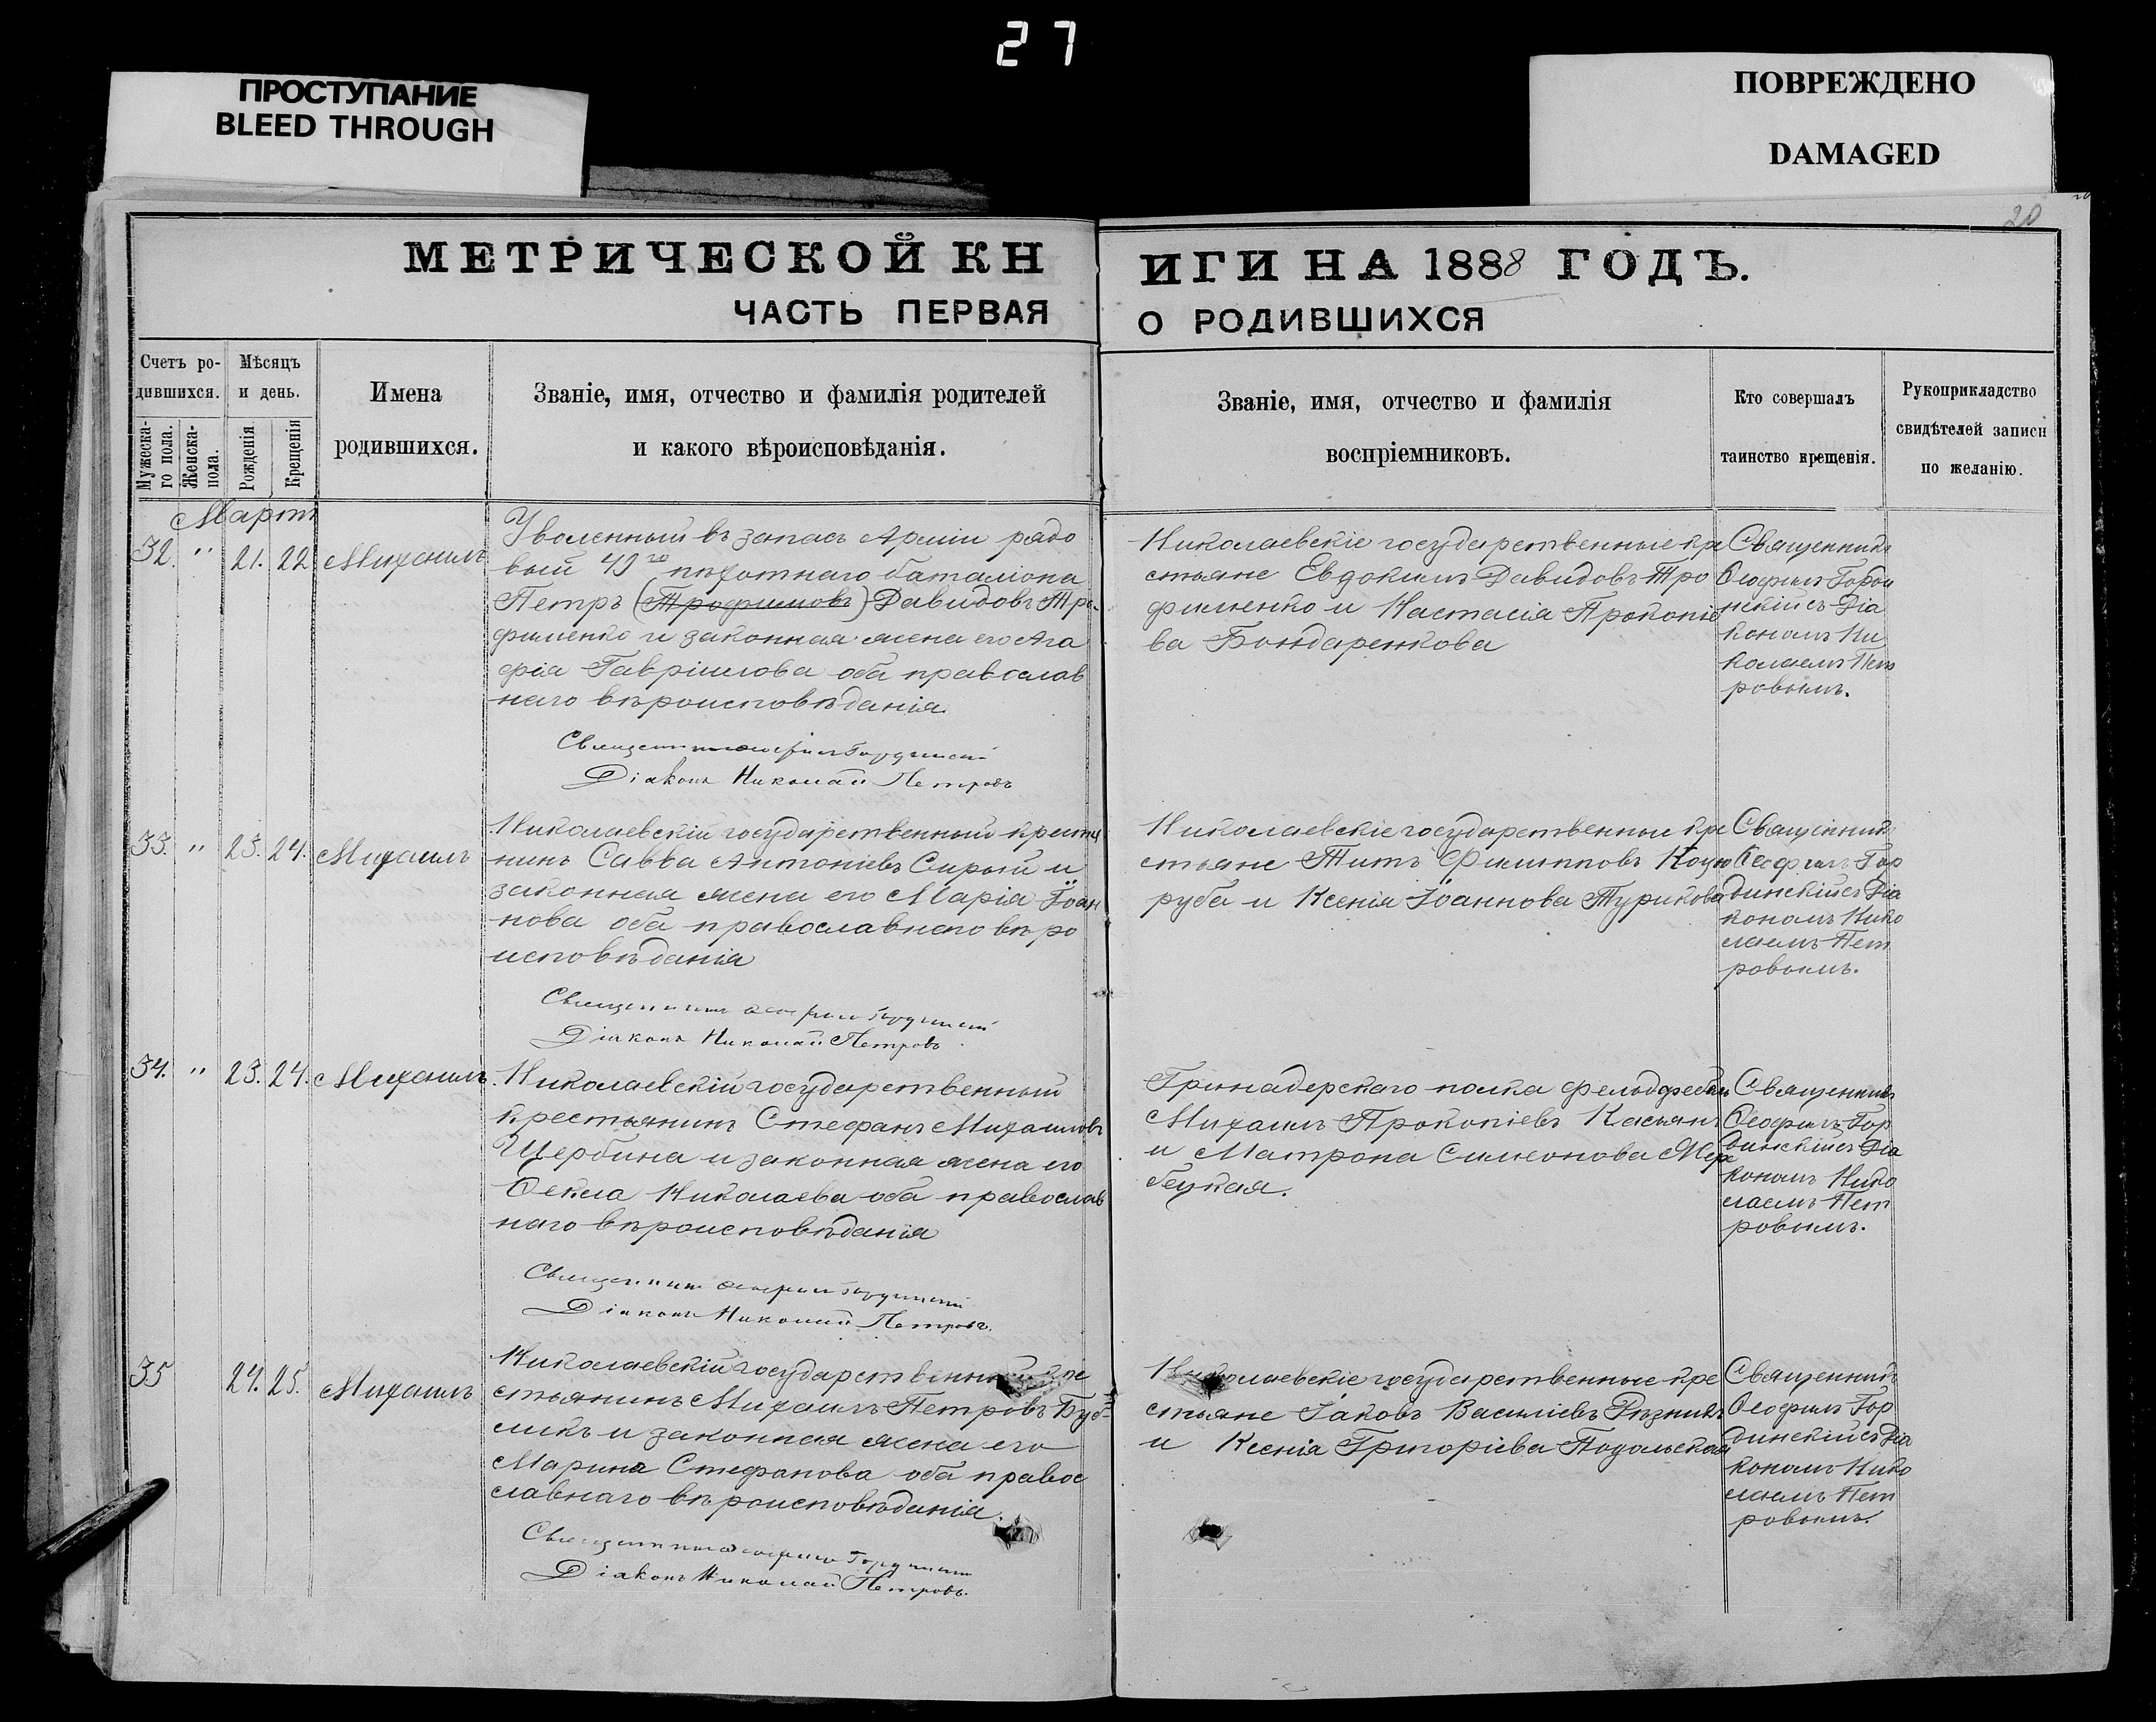 27
ПРОСТУПАНИЕ
BLEED THROUGH
ПОВРЕЖДЕНО
DAMAGED
20
МЕТРИЧЕСКОЙ КН
ИГИ НА 1888 ГОДЪ.
ЧАСТЬ ПЕРВАЯ
О РОДИВШИХСЯ
Счетъ ро-
дившихся.
Мужеска-
го пола.
Женска-
пола.
Мѣсяцъ
и день.
Рожденія
Крещенія
Имена
родившихся.
Званіе, имя, отчество и фамилія родителей
и какого вѣроисповѣданія.
Званіе, имя, отчество и фамилія
воспріемниковъ.
Кто совершалъ
таинство крещенія.
Рукоприкладство
свидѣтелей записи
по желанію.
Мартъ
32. " 21. 22 Михаилъ
Уволенный въ запасъ Арміи рядо
вый 49го пѣхотнаго баталіона
Петръ (Трофимовъ) Давидовъ Тро-
фименко и законная жена его Ага
фія Гавріилова оба православ
наго вѣроисповѣданія.
Священникъ Ѳеофилъ Гординскій
Діаконъ Николай Петровъ
Николаевскіе государственные кре
стьяне Евдокимъ Давидовъ Тро
фименко и Настасія Прокопіе
ва Бондаренкова
Священникъ
Ѳеофилъ Горди
нскій съ Діа
кономъ Ни
колаемъ Пет
ровымъ.
33. " 23. 24. Михаилъ
Николаевскій государственный крестья
нинъ Савва Антоніевъ Сирый и
законная жена его Марія Іоан
нова оба православнаго вѣро
исповѣданія
Священникъ Ѳеофилъ Гординскій
Діаконъ Николай Петровъ
Николаевскіе государственные кре
стьяне Титъ Филипповъ Коцю
руба и Ксенія Іоаннова Турикова
Священникъ
Ѳеофилъ Гор
динскій съ Діа
кономъ Нико
лаемъ Пет
ровымъ.
34. " 23. 24. Михаилъ
Николаевскій государственный
крестьянинъ Стефанъ Михаиловъ
Щербина и законная жена его
Ѳекла Николаева оба православ
наго вѣроисповѣданія
Священникъ Ѳеофилъ Гординскій
Діаконъ Николай Петровъ.
Гринадерскаго полка фельдфебель
Михаилъ Прокопіевъ Касьянъ
и Матрона Симеонова
бецкая.
Священникъ
Ѳеофилъ Гор
динскій съ Діа
кономъ Нико
лаемъ Пет
ровымъ.
35 24. 25. Михаилъ
Николаевскій государственный кре
стьянинъ Михаилъ Петровъ Буб-
ликъ и законная жена его
Марина Стефанова оба право
славнаго вѣроисповѣданія.
Священникъ Ѳеофилъ Гординскій
Діаконъ Николай Петровъ.
Николаевскіе государственные кре
стьяне Іаковъ Василіевъ Рѣзникъ
и Ксенія Григоріева Подольская
Священникъ
Ѳеофилъ Гор
динскій съ Діа
кономъ Нико
лаемъ Пет
ровымъ.